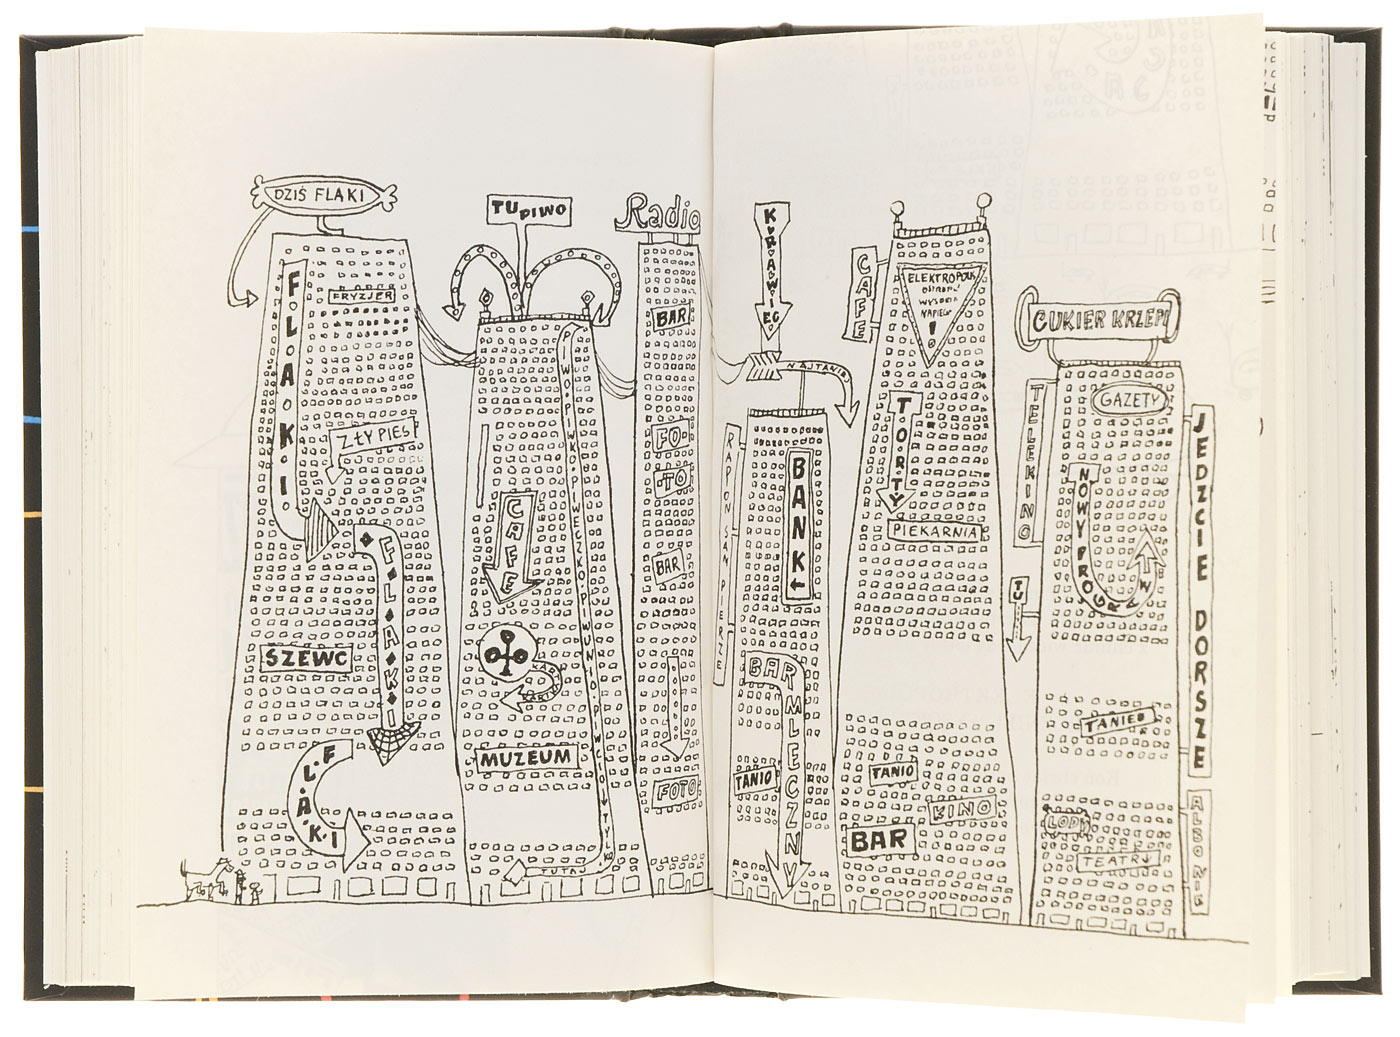 DZIŚ FLAKI
F·L·A·K·I
FRYZJER
ZŁY PIES
F·L·A·K·I
SZEWC
F·L·A·K·I
TU PIWO
PIWO·PIWKO·PIWECZKO·PIWUNIO·PIWCO
TYLKO
TUTAJ
CAFE
KARTY
KARTY
MUZEUM
Radio
BAR
FO-
TO
BAR
FOTO
KRAWIEC
NAJTANIEJ
RAPON SAN PIERZE
BANK
BAR MLECZNY
TANIO
CAFE
ELEKTROPOLK
WYSOKIE
NAPIĘCIE
!
TORTY
PIEKARNIA
TANIO
KINO
BAR
CUKIER KRZEPI
GAZETY
TELEKINO
NOWY PROGRAM TV
TU
JEDZCIE DORSZE
TANIEJ
LODY
TEATR
ALBO NIE